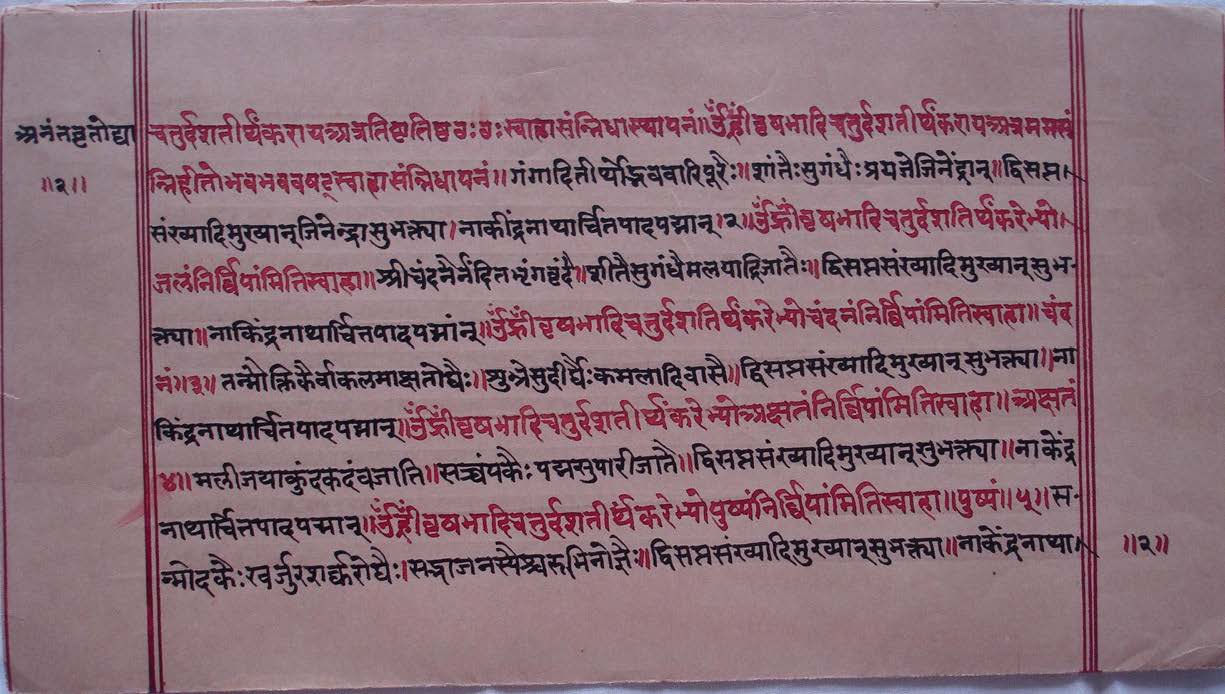 अनंतवृतोद्या
॥२॥
चतुर्दशतीर्थंकरायअत्रतिष्टतिष्टठःठःस्वाहासंन्निधास्थापनं॥ॐह्रीँवृषभादिचतुर्दशतीर्थंकरायअत्रममसं
न्निहीतोभवभववषट्स्वाहासंन्निधापनं॥गंगादितीर्थोद्भववारिपूरैः॥शांतैःसुगंधैःप्रयजेजिनेंद्रान्॥द्विसप्त
संख्यादिमुख्यान्जिनेन्द्रासुभक्त्या।नाकींद्रनाथार्चितपादपद्मान्।२॥ॐह्रीँवृषभादिचतुर्दशतिर्थंकरेभ्यो
जलंनिर्व्विपांमितिस्वाहा॥श्रीचंदनैर्नंदितभृंगवृंदै॥शीतैसुगंधैमलयाद्रिजातैः॥द्विसप्तसंख्यादिमुख्यान्सुभ-
क्त्या॥नाकिंद्रनाथार्चित्तपादपद्मांन्॥ॐह्रीँवृषभादिचतुर्दशतिर्थंकरेभ्योचंदनंनिर्व्विपांमितिस्वाहा॥चंद
नं॥३॥तन्मौक्तिकैर्वाकलमाक्षतोघैः॥शुभ्रैसुदीर्घैःकमलादिवासै॥द्विसप्तसंख्यादिमुख्यान्सुभक्त्या॥ना
किंद्रनाथार्चितपादपद्मान्॥ॐह्रीँवृषभादिचतुर्दशतीर्थंकरेभ्योअक्षतंनिर्व्विपांमितिस्वाहा॥अक्षतं
४॥मलीजयाकुंदकदंबजाति॥सच्चंपकैःपद्मसुपारीजातै॥द्विसप्तसंख्यादिमुख्यान्सुभक्त्या॥नाकेंद्र
नाथार्चितपादपद्मान्॥ॐह्रीँवृषभादिचतुर्दशतीर्थंकरेभ्योपुष्पंनिर्व्विपांमितिस्वाहा॥पुष्पं॥५॥स-
न्मोदकैःखर्जुरशर्क्करोघैः॥द्विसप्तसंख्यादिमुख्यान्सुभक्त्या॥नाकेंद्रनाथा
॥२॥